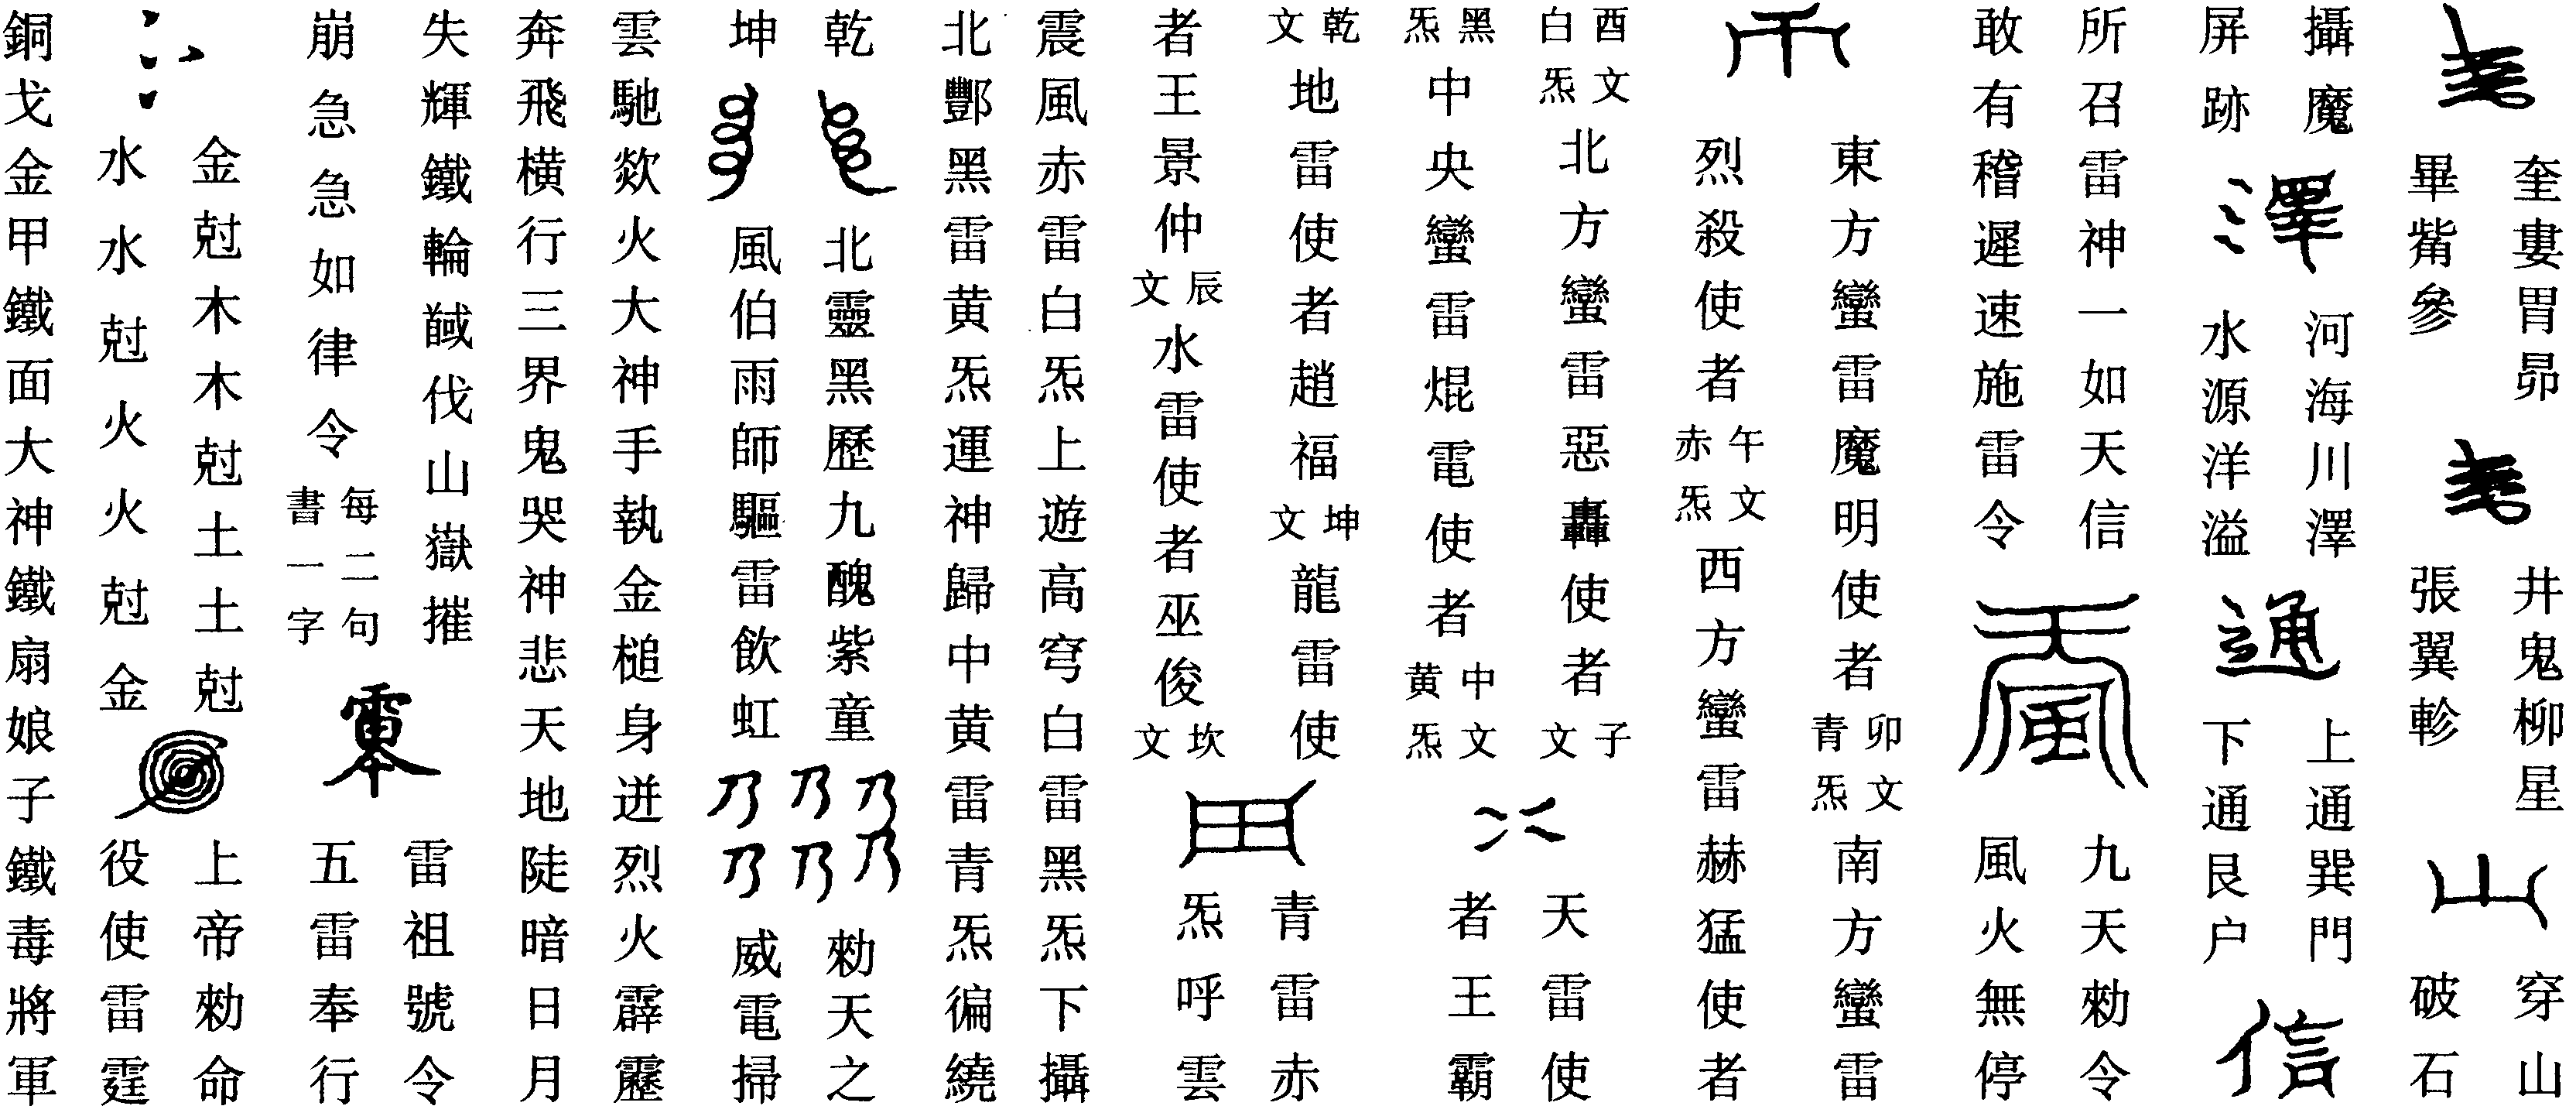 奎婁胃昴
畢觜參
井鬼柳星
張翼軫
山
穿山
破石
攝魔
屏跡
澤
河海川澤
水源洋溢
通
上通巽門
下通艮户
信
所召雷神一如天信
敢有稽遲速施雷令
九天勑令
風火無停
東方蠻雷魔明使者卯文青炁南方蠻雷
烈殺使者午文赤炁西方蠻雷赫猛使者
酉文白炁北方蠻雷惡轟使者子文
黑炁中央蠻雷焜電使者中文黄炁
天雷使
者王霸
乾文地雷使者趙福坤文龍雷使
者王景仲辰文水雷使者巫俊坎文
青雷赤
炁呼雲
震風赤雷白炁上遊高穹白雷黑炁下攝
北酆黑雷黄炁運神歸中黄雷青炁徧繞
乾
坤
北靈黑歷九醜紫童
風伯雨師驅雷飲虹
乃乃乃
乃乃乃
勑天之
威電掃
雲馳欻火大神手執金槌身迸烈火霹靂
奔飛橫行三界鬼哭神悲天地陡暗日月
失輝鐵輪馘伐山嶽摧
崩急急如律令每二句書一字
雷祖號令
五雷奉行
金尅木木尅土土尅
水水尅火火尅金
上帝勑命
役使雷霆
銅戈金甲鐵面大神鐵扇娘子鐵毒將軍